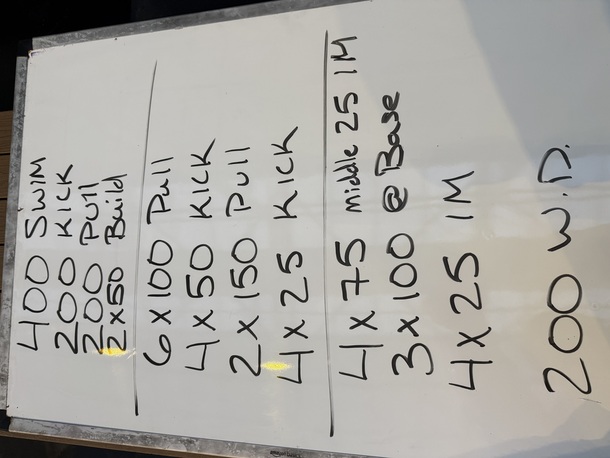 400 SWIM
200 KICK
200 PULL
2x50 Build
6 x 100 Pull
4 x 50 KICK
2 x 150 Pull
4 x 25 KICK
4 x 75 middle 25 IM
3 x 100 @ Base
4 x 25 IM
200 W.D.